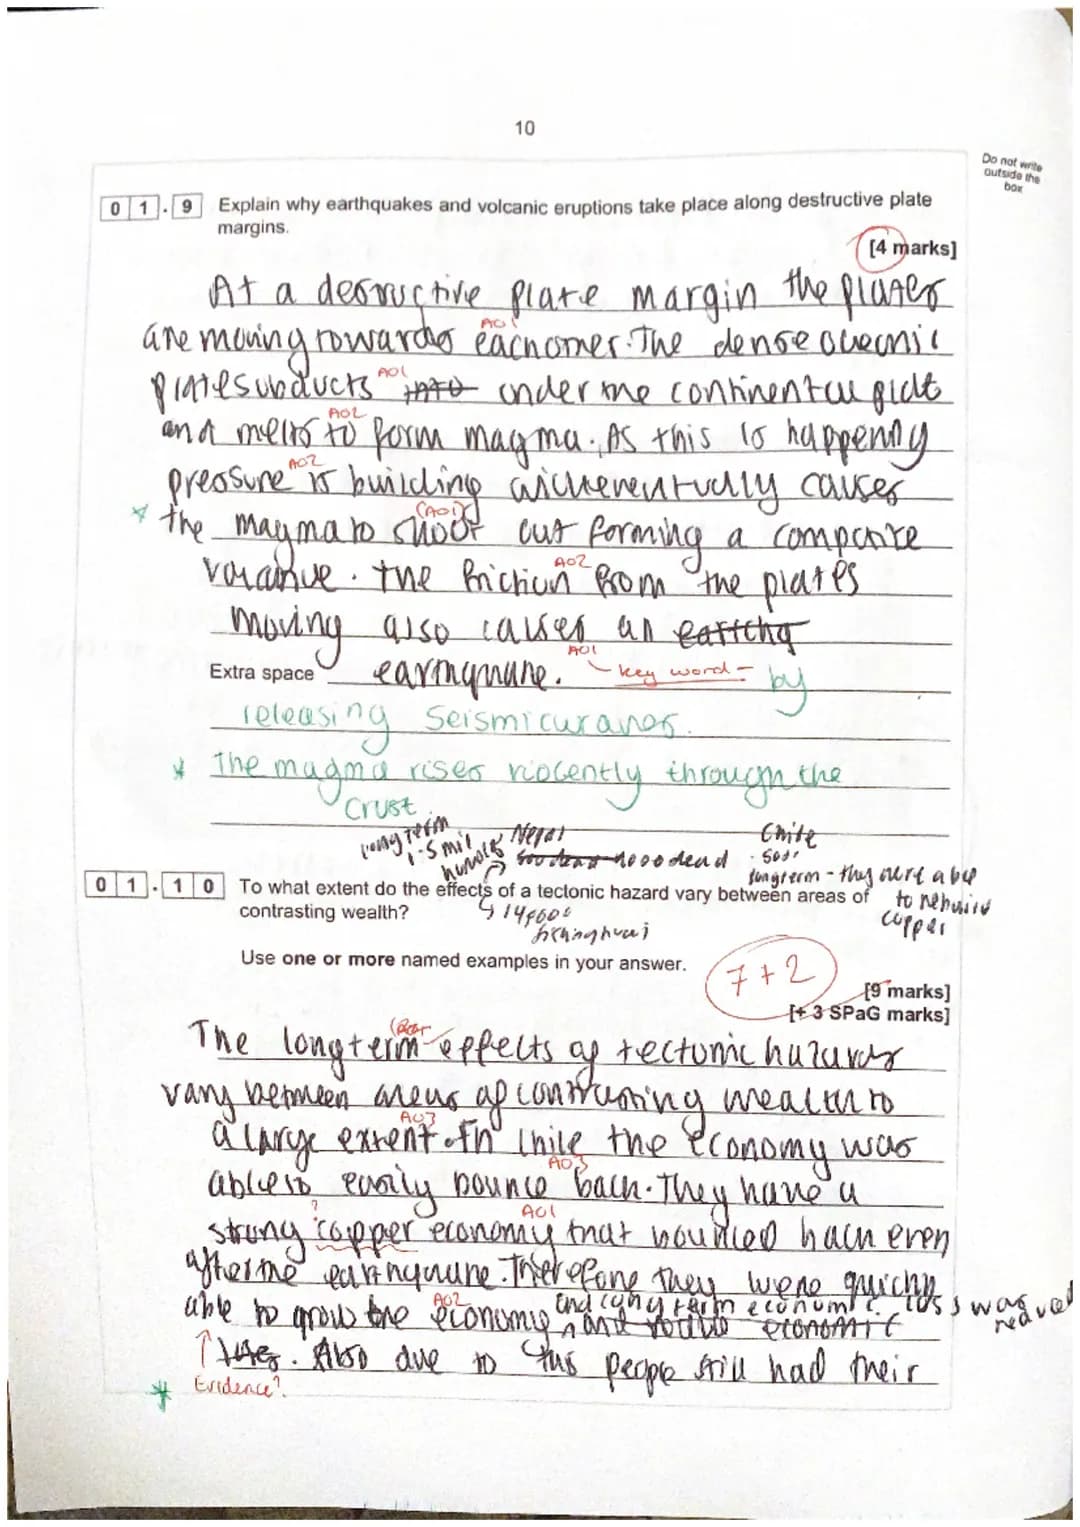 10
Do not write
outside the
box
0 1 . 9 Explain why earthquakes and volcanic eruptions take place along destructive plate
margins.
[4 marks]
At a destructive plate margin the plates
AO1
are moving towards eachother. The dense oceanic
AO1
plate subducts into under the continental plate
AO2
and melts to form magma. As this is happening
AO2
pressure is building which eventually causes
(AO1)
* the magma to shoot out forming a composite
AO2
volcanoe. The friction from the plates
moving also causes an earthq
AO1
Extra space earthquake. - key word - by
releasing seismic waves.
* The magma rises violently through the
crust.
long term
1.5 mil
homeless
Nepal
dead
Chile
500
longterm - they were able
to rebuild
copper
0 1 . 1 0 To what extent do the effects of a tectonic hazard vary between areas of
contrasting wealth?
Use one or more named examples in your answer.
7 + 2
[9 marks]
[+ 3 SPaG marks]
The longterm effects of tectonic hazards
vary between areas of contrasting wealth to
AO3
a large extent. In Chile the economy was
AO3
able to easily bounce back. They have a
? AO1
strong copper economy that bounced back even
after the earthquake. Therefore they were quickly
AO2
able to grow the economy and long term economic loss was
economic
. Also due to this people still had their
Evidence?
*